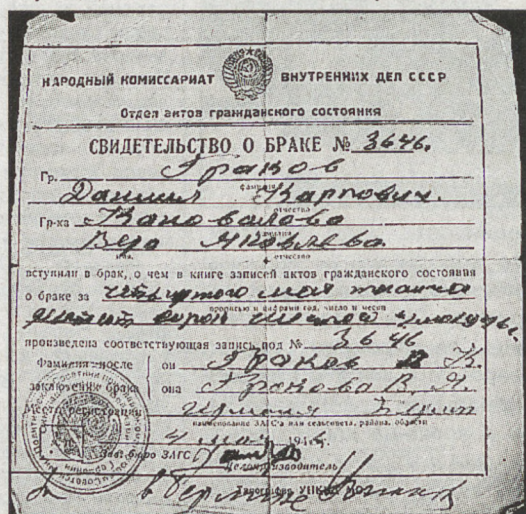 НАРОДНЫЙ КОМИССАРИАТ ВНУТРЕННИХ ДЕЛ СССР
Отдел актов гражданского состояния
СВИДЕТЕЛЬСТВО О БРАКЕ № 3646.
Гр. Граков
фамилия
Даниил Карпович.
отчество
Гр-ка Кановалова
Вера Яковлева
имя, отчество
вступили в брак, о чем в книге записей актов гражданского состояния
о браке за четвертого мая тысяча
прописью и цифрами год, число и месяц
сорок
произведена соответствующая запись под № 3646
Фамилия после он Граков
заключения брака она Гракова В. Я.
Место регистрации Берлин
наименование ЗАГС'а или сельсовета, района, области
4 мая 194
бюро ЗАГС
Делопроизводитель
в Берлине
Типография